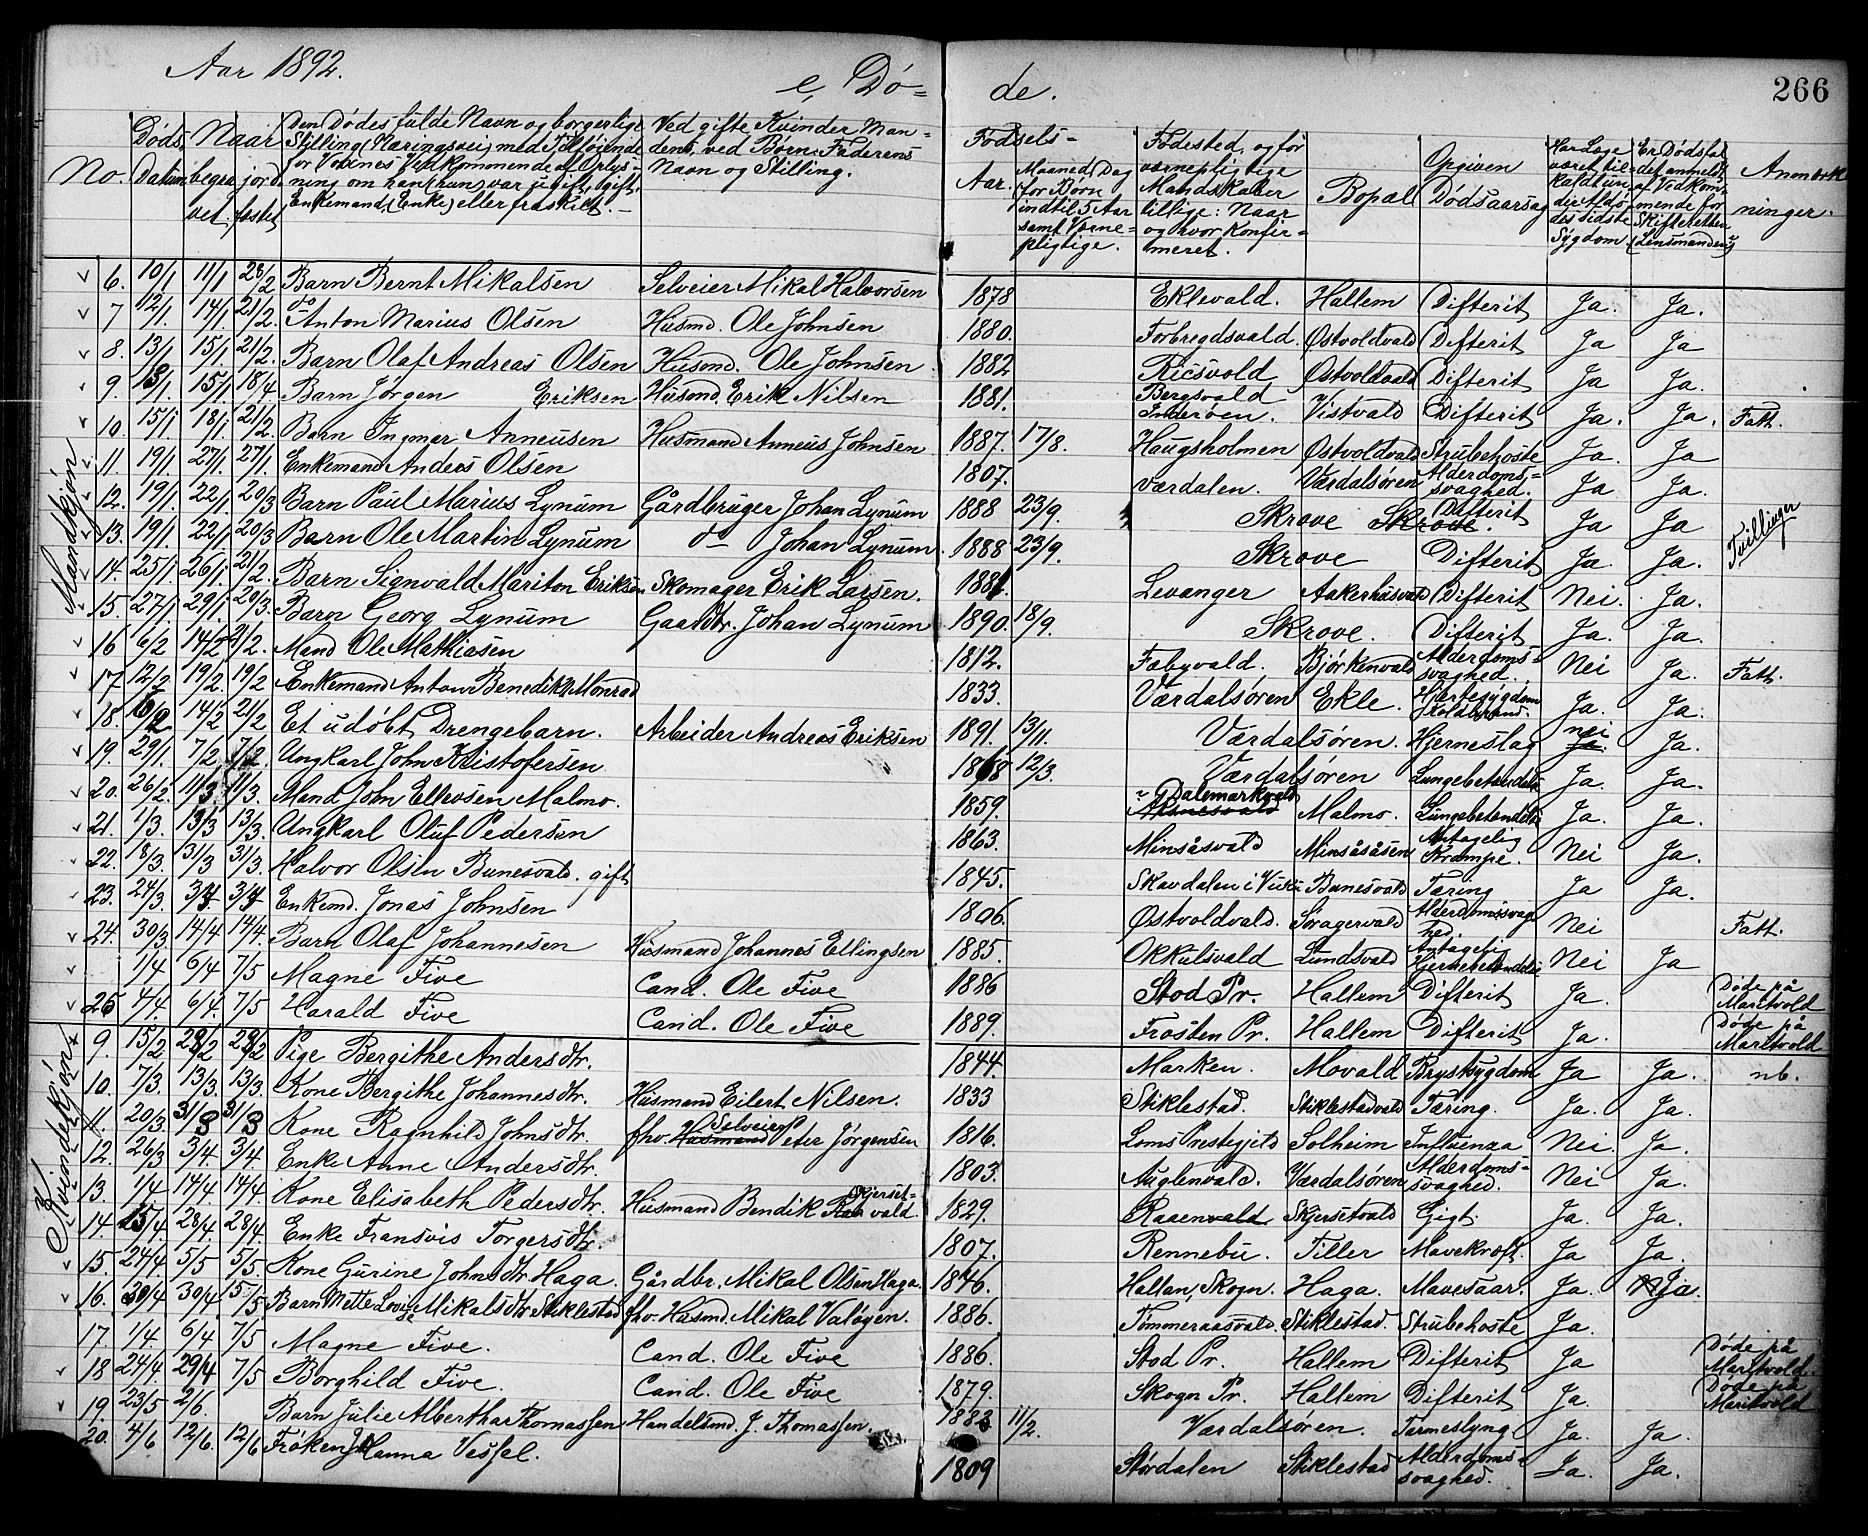 Aar 1892.
e, Dø=
de.
266
No.
Døds
Datum
Naar
begra
vet.
jord
fæstet
Den Dødes fulde Navn og borgerlige
Stilling (Næringsvei) med Tilføiende
for Voxnes Vedkommende af Oplys=
ning om han (hun) var ugift, gift,
Enkemand, (Enke) eller fraskilt.
Ved gifte Kvinder Man=
dens, ved Børn Faderens
Navn og Stilling.
Fødsels=
Aar.
Maaned, Dag
for Børn
indtil 5 Aar
samt Værne=
pligtige.
Fødested, og for
værnepligtige
Mandskaber
tillige: Naar
og hvor Konfir=
meret.
Bopæl
Opgiven
Dødsaarsag
Har Læge
været til=
kaldt un
der Afdø
des sidste
Sygdom.
Er Dødsfal
det anmeldt
af Vedkom=
mende for
Skifteretten
(Lensmanden)
Anmærk
ninger.
Mandkjøn
6. 10/1 11/1 28/2 Barn Bernt Mikalsen Selveier Mikal Halvorsen 1878 Eklevald. Hallem Difterit Ja. Ja.
7 12/1. 14/1. 21/2. do Anton Marius Olsen Husmd. Ole Johnsen 1880. Forbregdsvald. Østvoldvald Difterit Ja Ja
8. 13/1 15/1. 21/2. Barn Olaf Andreas Olsen Husmd. Ole Johnsen 1882 Ricsvold Østvoldvald Difterit Ja Ja.
9. 13/1. 15/1 18/4 Barn Jørgen Eriksen Husmd. Erik Nilsen 1881. Bergsvald Inderøen. Vistvald Difterit Ja. Ja. Fatt.
10. 15/1 18/1. 21/2. Barn Ingmar Anneusen Husmand Anneus Johnsen 1887. 17/8. Haugsholmen Østvoldvald Strubehoste Ja. Ja
11. 19/1 27/1. 27/1. Enkemand Anders Olsen 1807. Værdalen. Værdalsøren Alderdoms= svaghed. Ja Ja.
12. 19/1. 22/1. 20/3 Barn Paul Marius Lynum Gårdbruger Johan Lynum 1888 23/9. Skrove Skrove. Difterit Ja Ja Tvillinger
13. 19/1 22/1 20/3 Barn Ole Martin Lynum do Johan Lynum. 1888 23/9. Skrove Difterit Ja. Ja.
14. 25/1. 26/1. 21/2. Barn Signvald Mariton Eriksen Skomager Erik Larsen. 1881. Levanger Aakerhusvald Difterit Nei. Ja.
15. 27/1 29/1. 20/3. Barn Georg Lynum Gaardbr. Johan Lynum 1890. 18/9. Skrove. Difterit Ja. Ja.
16 6/2 14/2 21/2. Mand Ole Mathiasen 1812. Fæbyvald. Bjørkenvald Alderdoms= svaghed. Nei Ja. Fatt.
17 12/2 19/2. 19/2 Enkemand Anton Benedikt Monrad 1833. Værdalsøren Ekle. Hjertesygdom Koldbrand. Ja. Ja.
18. 10/2 14/2 21/2 Et udøbt Drengebarn. Arbeider Andreas Eriksen 1891. 13/11. Værdalsøren. Hjerneslag nei Ja. Ja.
19. 29/1. 7/2 7/2 Ungkarl John Kristofersen 1868 12/3. Værdalsøren Lungebetændelse Ja. Ja.
20. 26/2. 11/3 11/3. Mand John Ellevsen Malmo. 1859. Dalemarkvald Malmo. Lungebetændelse Ja. Ja.
21. 1/3. 13/3 13/3. Ungkarl Oluf Pedersen 1863. Minsåsvald Minsåsåsen Antagelig Krampe. Nei Ja.
22. 18/3. 31/3 31/3. Halvor Olsen Bunesvald. gift 1845. Skavdalen i Vuku Bunesvald Tæring Ja Ja.
23. 24/3. 3/4 3/4 Enkemd. Jonas Johnsen 1806. Østvoldvald. Svagervald Alderdomssvag hed. Nei Fatt.
24. 30/3. 14/4 14/4. Barn Olaf Johannesen Husmand Johannes Ellingsen 1885. Okkulsvald Lundsvald Antageli Hjernebetændelse Nei Ja
1/4 6/4 7/5 Magne Five Cand. Ole Five 1886 Stod Pr. Hallem Difterit Ja. Døde på Maritvold
25 4/4. 6/4. 7/5 Harald Five Cand. Ole Five 1889. Frosten Pr. Hallem Difterit Ja. Døde på Maritvold
Kvindekjøn
9. 15/2 28/2 28/2 Pige Bergithe Andersdtr. 1844. Marken. Movald Brystsygdom Ja Ja. nb.
10. 7/3. 13/3. 13/3. Kone Bergithe Johannesdtr. Husmand Eilert Nilsen. 1833 Stiklestad. Stiklestadvald Tæring. Ja. Ja.
11. 20/3 31/3 31/3 Kone Ragnhild Johnsdtr. fhv. Husmand Selveier Peter Jørgensen 1816. Loms Prestegjeld Solheim Influenza Nei. Ja.
12. 26/3 3/4. 3/4. Enke Anne Andersdtr. 1803. Auglenvald. Værdalsøren Alderdoms= svaghed. Nei Ja.
13. 1/4 14/4 14/4 Kone Elisabeth Pedersdtr. Husmand Bendik Skjerset= vald. 1829. Raaenvald Skjersetvald Gigt. Ja. Ja.
14. 15/4. 28/4. 28/4. Enke Fransvis Torgersdtr. 1807. Rennebu. Tiller Mavekræft. Ja Ja.
15. 24/4 5/5 5/5. Kone Gurine Johnsdtr Haga. Gårdbr. Mikal Olsen Haga. 1846. Hallan, Skogn. Haga. Mavesaar. Ja. Ja.
16. 30/4 5/5 Barn Mette Lovise Mikalsdtr Stiklestad fhv. Husmd. Mikal Valøyen. 1886. Tømmeraasvald. Stiklestad. Strubehoste Ja.
17. 1/4. 6/4 7/5 Magne Five. Cand. Ole Five 1886. Stod Pr. Hallem Difterit Ja Døde på Maritvold.
18 24/4. 29/4 7/5 Borghild Five. Cand. Ole Five 1879. Skogn Pr. Hallem Difterit Ja. Døde på Maritvold
19. 23/5 2/6. Barn Julie Alberthar Thomassen Handelsmd. J. Thomassen. 1883 11/2. Værdalsøren. Tarmeslyng Ja. Ja.
20. 4/6 12/6. 12/6 Frøken Hanna Vessel. 1809 Størdalen Stiklestad Alderdoms= svaghed. Ja. Ja.